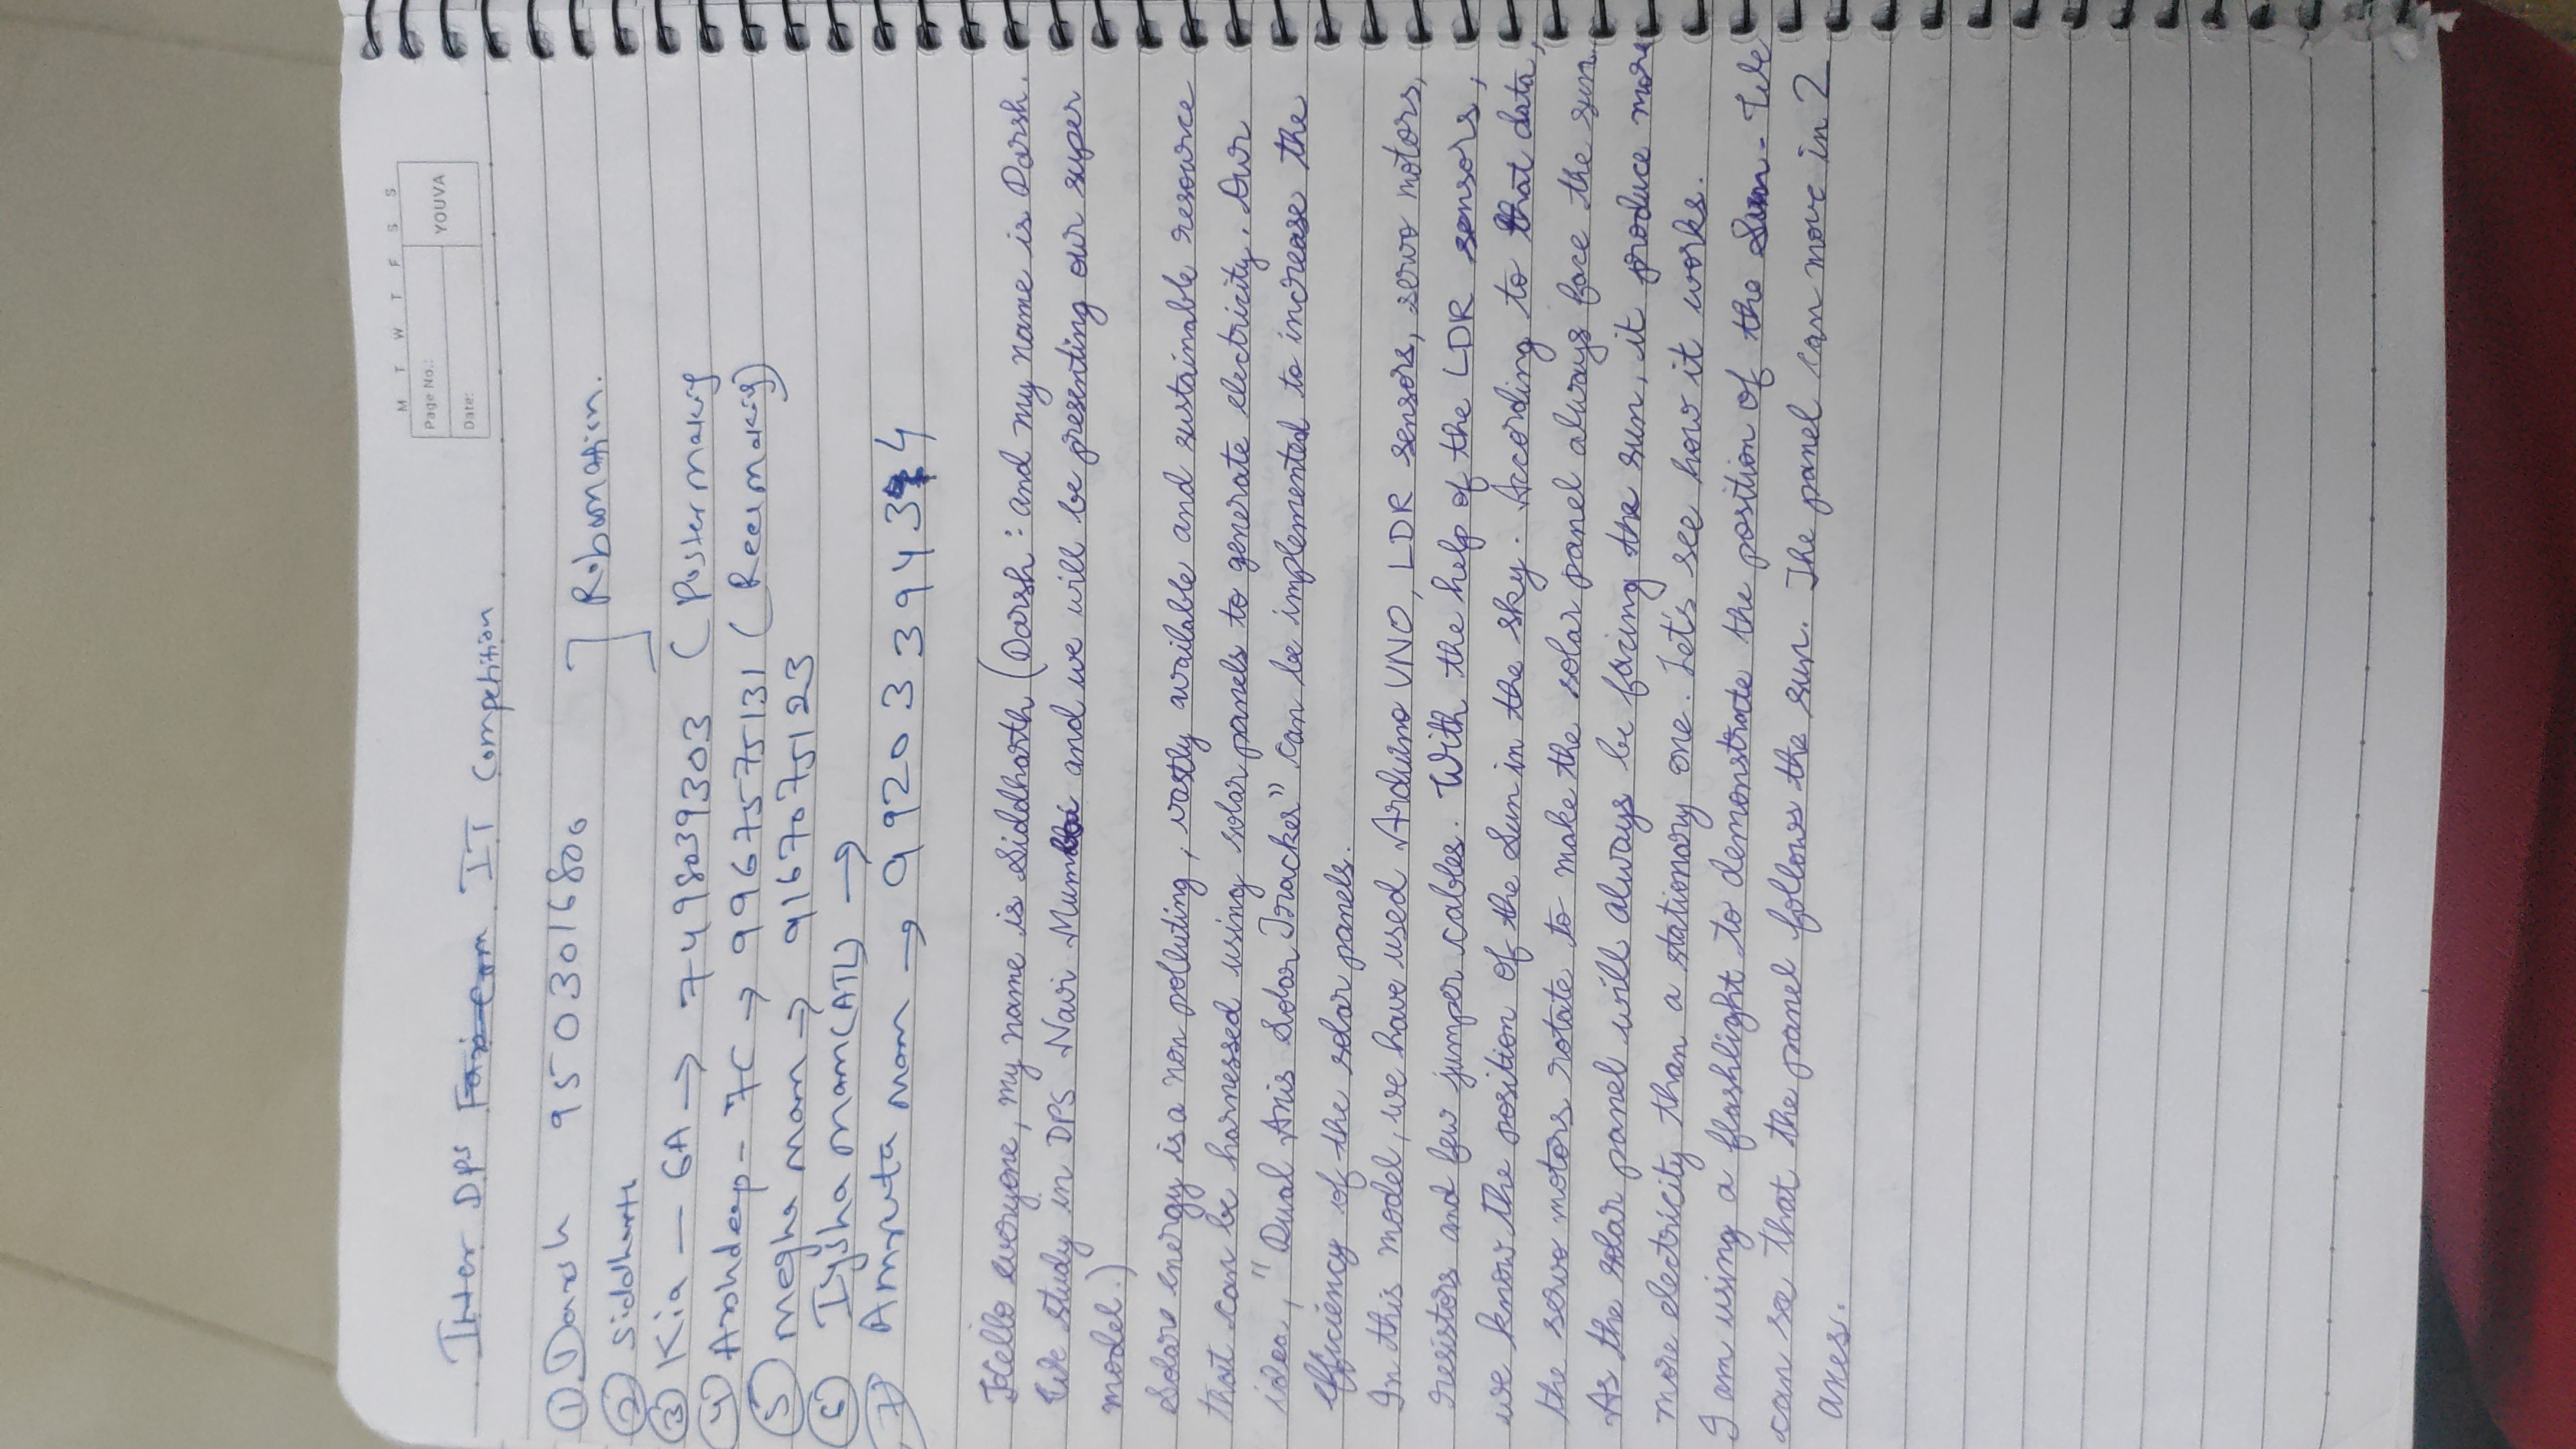 M T W T F S S
Page No.:
YOUVA
Date:
Inter DPS IT Competition
① Darsh 9503016800
Robomation.
② Siddharth
③ Kia — 6A → 7498039303 (Poster Making
④ Arshdeep - 7C → 9967575131 (Reel Making)
⑤ Megha Mam → 9167075123
⑥ Iysha Mam (ATL) →
⑦ Amruta Mam →
Hello everyone, my name is Siddharth (Darsh : and my name is Darsh.
We study in DPS Navi Mumbai and we will be presenting our super
model.)
Solar energy is a non polluting, vastly available and sustainable resource
that can be harnessed using solar panels to generate electricity. Our
idea, "Dual Axis Solar Tracker" can be implemented to increase the
efficiency of the solar panels.
In this model, we have used Arduino UNO, LDR sensors, servo motors,
resistors and few jumper cables. With the help of the LDR sensors,
we know the position of the Sun in the sky. According to that data,
the servo motors rotate to make the solar panel always face the sun.
As the solar panel will always be facing the sun, it produce more
more electricity than a stationary one. Let's see how it works.
I am using a flashlight to demonstrate the position of the Sun - We
can see that the panel follows the sun. The panel can move in 2
axes.